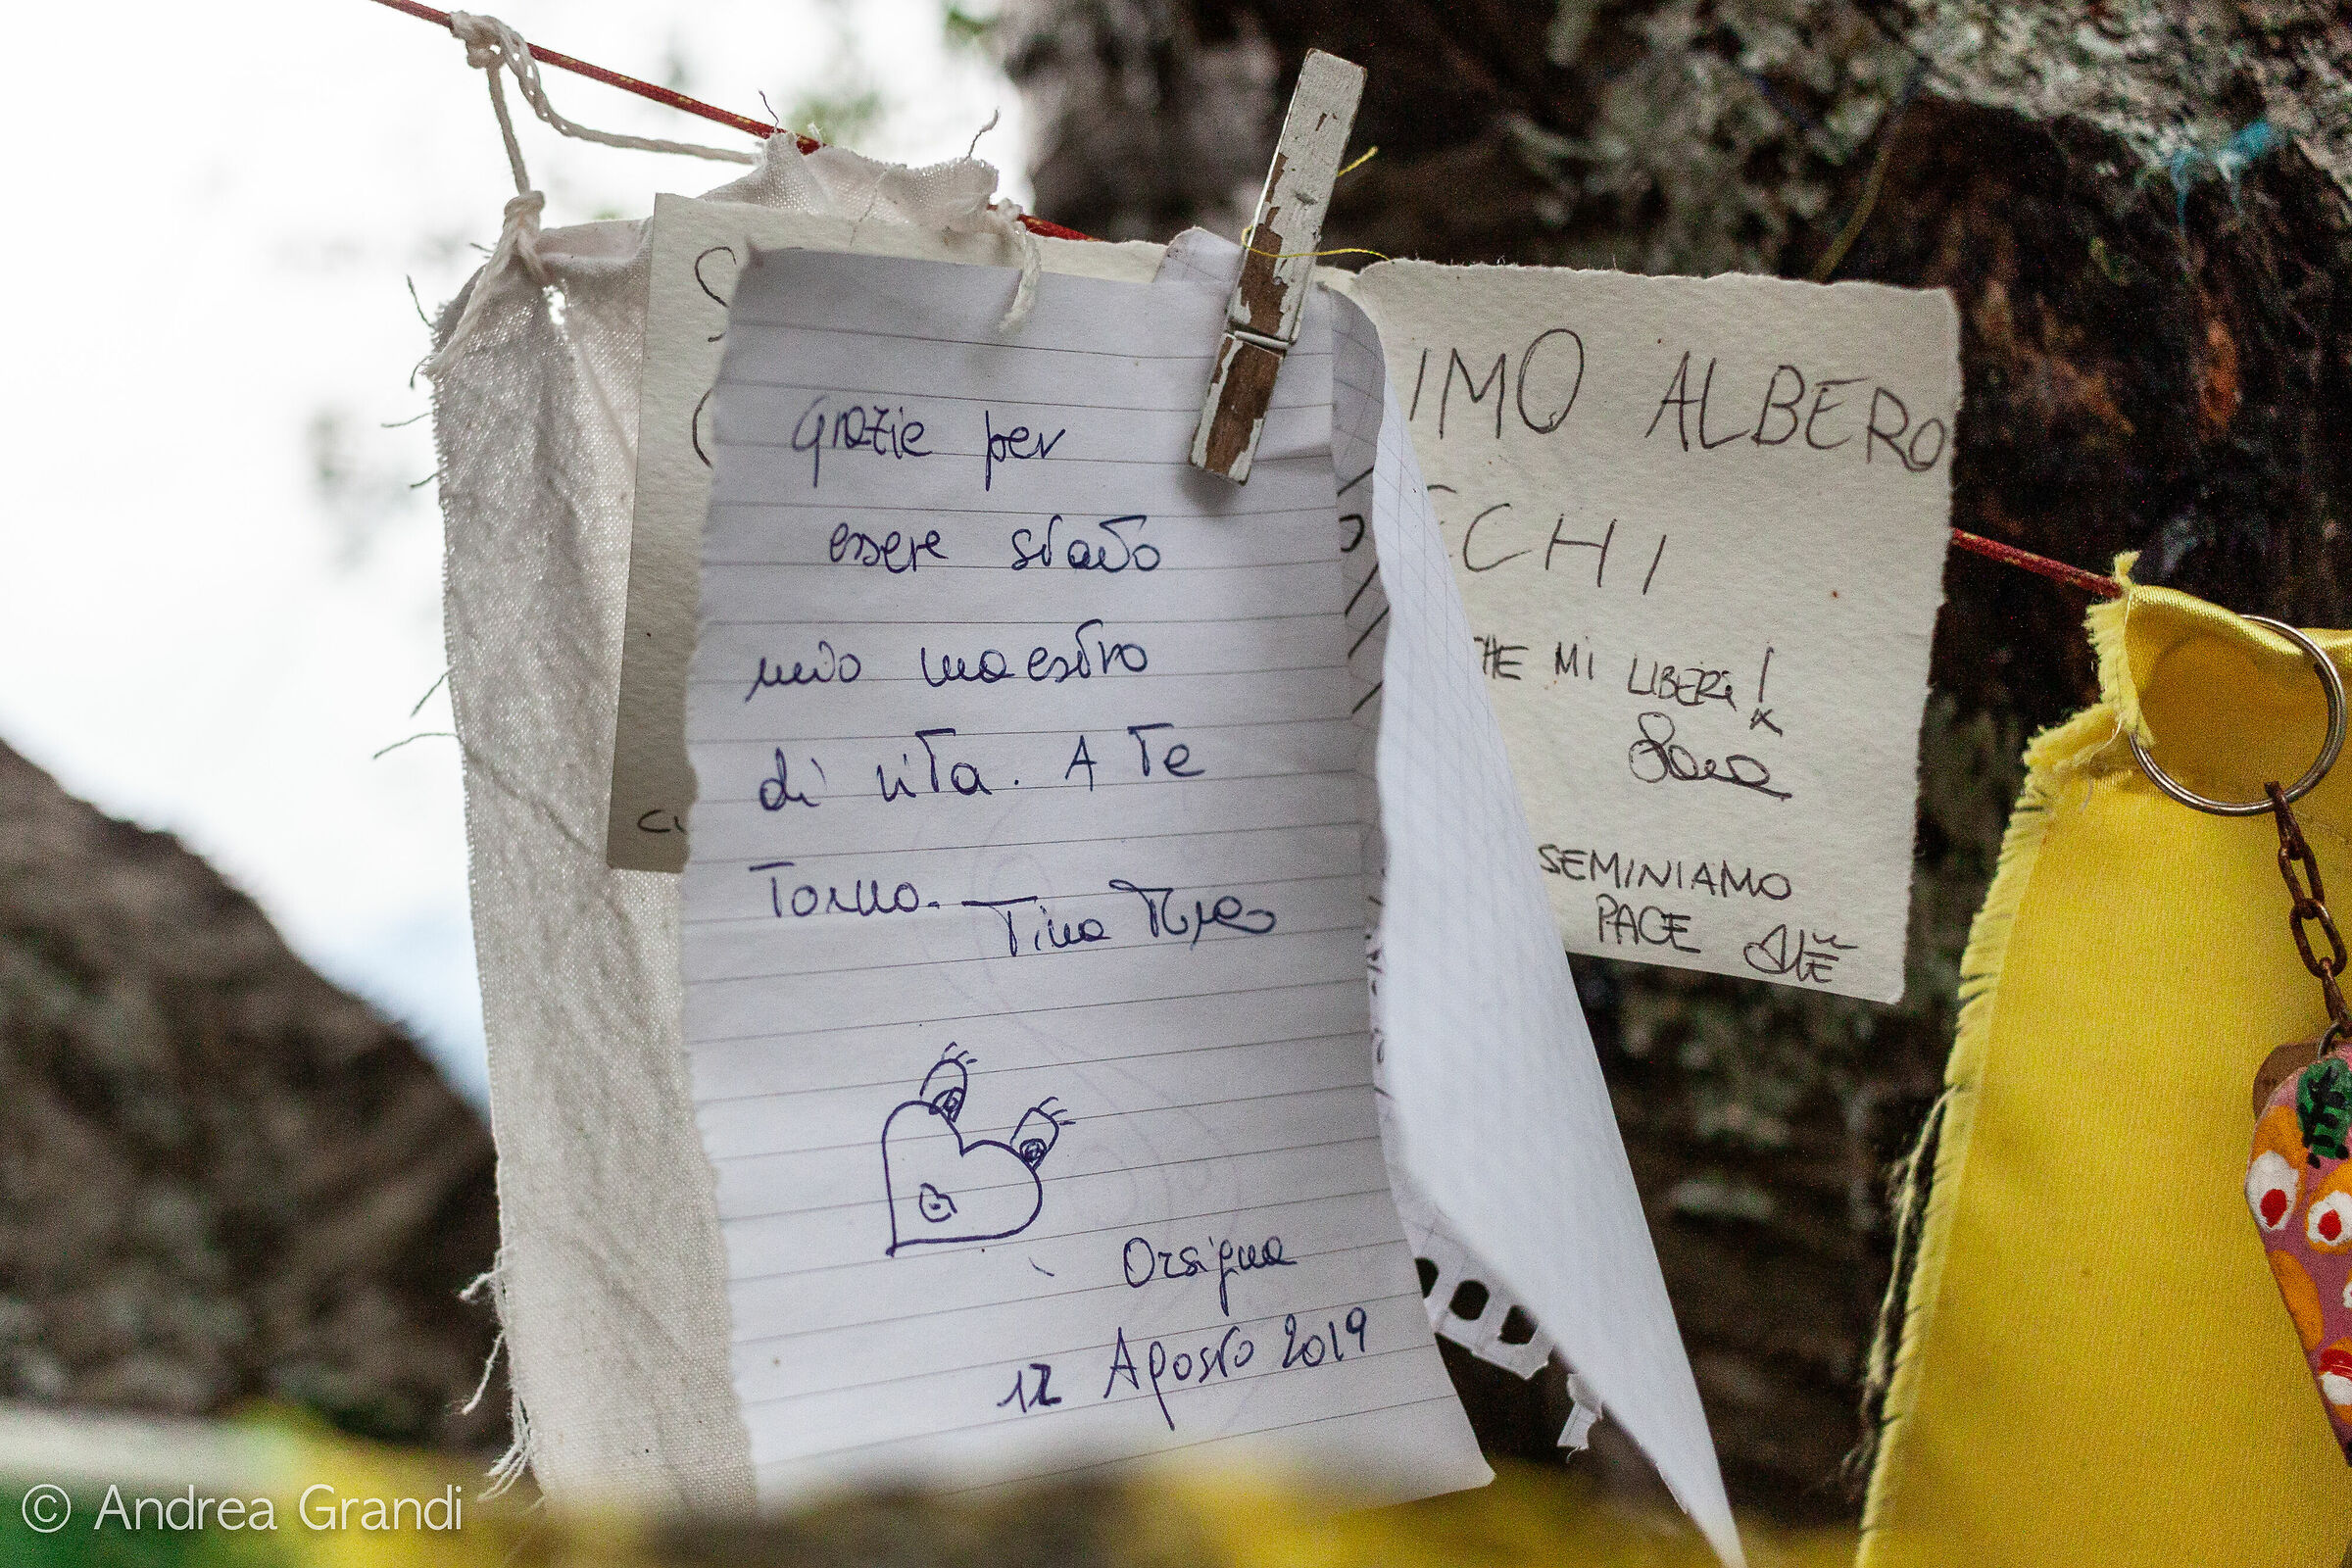 grazie per
essere stato
mio maestro
di vita. A Te
Torno. Tina
Orsigna
12 Agosto 2019
IMO ALBERO
ECHI
CHE MI LIBERI!
Sara
SEMINIAMO
PACE
© Andrea Grandi